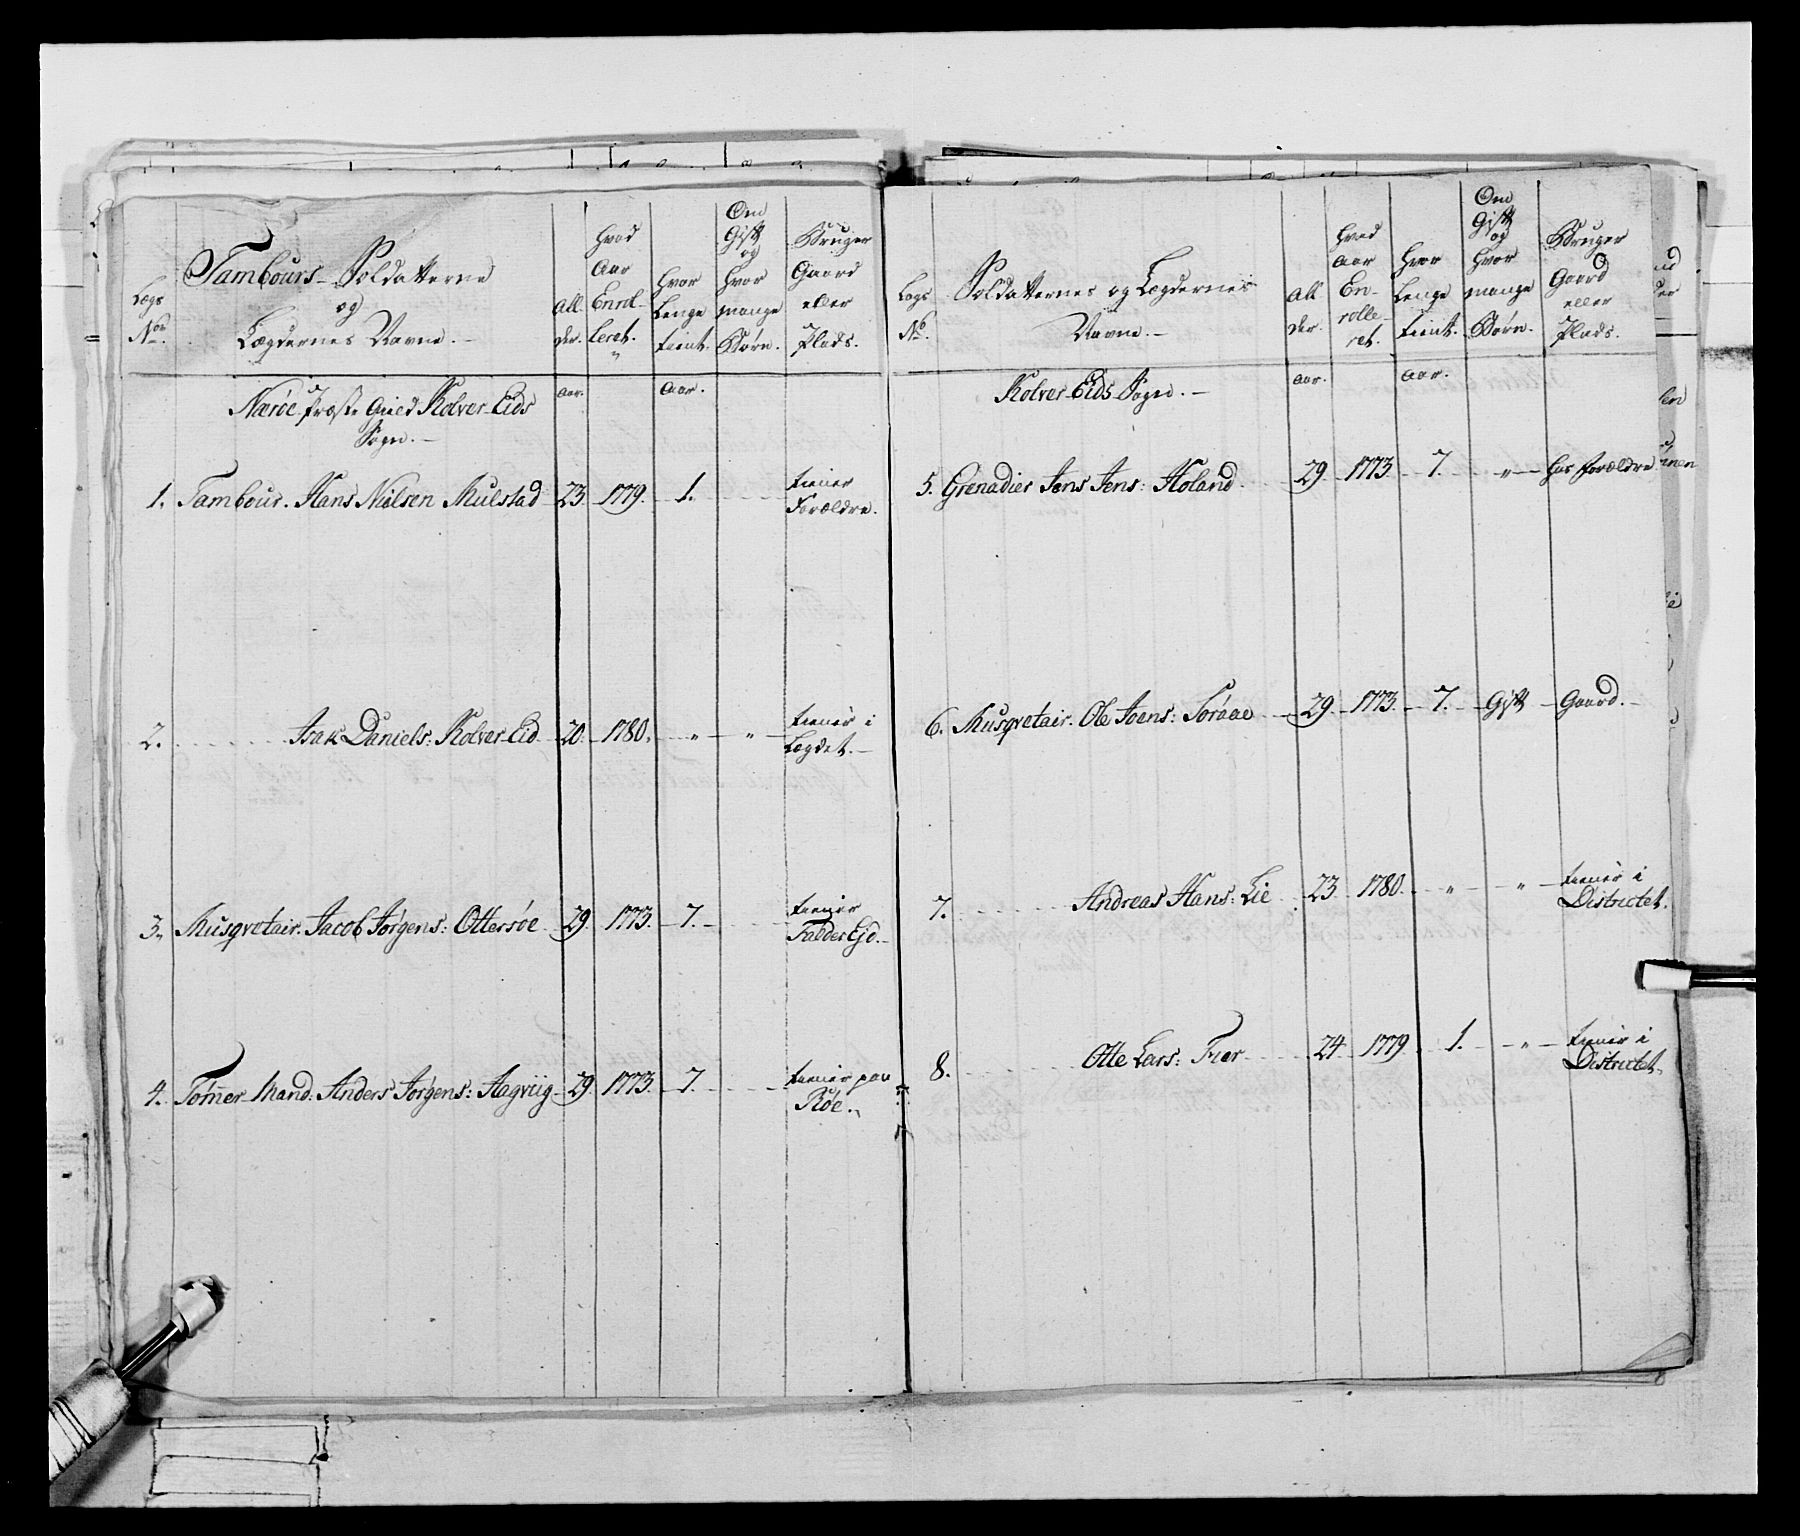 Tambours-Soldatterne
og
Lægdernes Navne.-
Lægs
No.
All
der.
Hvad
Aar
Enrol
leret.
Hvor
Lenge
tient.
Om
Gift
og
Hvor
mange
Børn.
Bruger
Gaard
eller
Plads.
Nærøe Præste Gield Kolver-Eids
Sogn.-
Aar.
Aar.
1. Tambour. Hans Nielsen Mulstad 23. 1779. 1. tiener
Forældre.
2. Isak Daniels: Kolver Eid 20. 1780. " " tiener i
Legdet.-
3. Musqvetair. Jacob Jørgens: Ottersøe 29. 1773. 7. tiener
Falder Ejd.-
4. Tømer Mand: Anders Jørgens: Aagviig 29. 1773. 7. tiener paa
Røe.
Lægs
No.
Soldatternes og Lægdernes
Navne.-
All
der.
Hvad
Aar
En-
rolle-
ret.
Hvor
Lenge
tient.
Om
Gift
og
Hvor
mange
Børn.
Bruger
Gaard
eller
Plads.
Kolver-Eids Sogn.-
Aar.
Aar.
5. Grenadier Jens Jens: Holand 29. 1773. 7. " hos forældre
6. Musqvetair. Ole Joens: Søraae 29. 1773. 7. Gift Gaard.
7. Andreas Hans: Lie 23 1780. " " tiener i
Districtet.
8. Otte Lars: Fier 24 1779 1. " tiener i
Districtet.